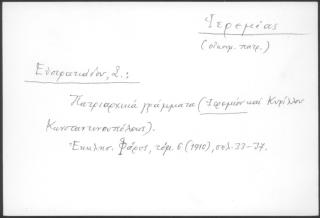 Ἱερεμίας
(οἰκουμ. πατρ.)
Εὐστρατιάδου, Σ.:
Πατριαρχικὰ γράμματα (Ἱερεμίου καὶ Κυρίλλου
Κωνσταντινουπόλεως).
Ἐκκλησ. Φάρος, τόμ. 6 (1910), σελ. 33-37.